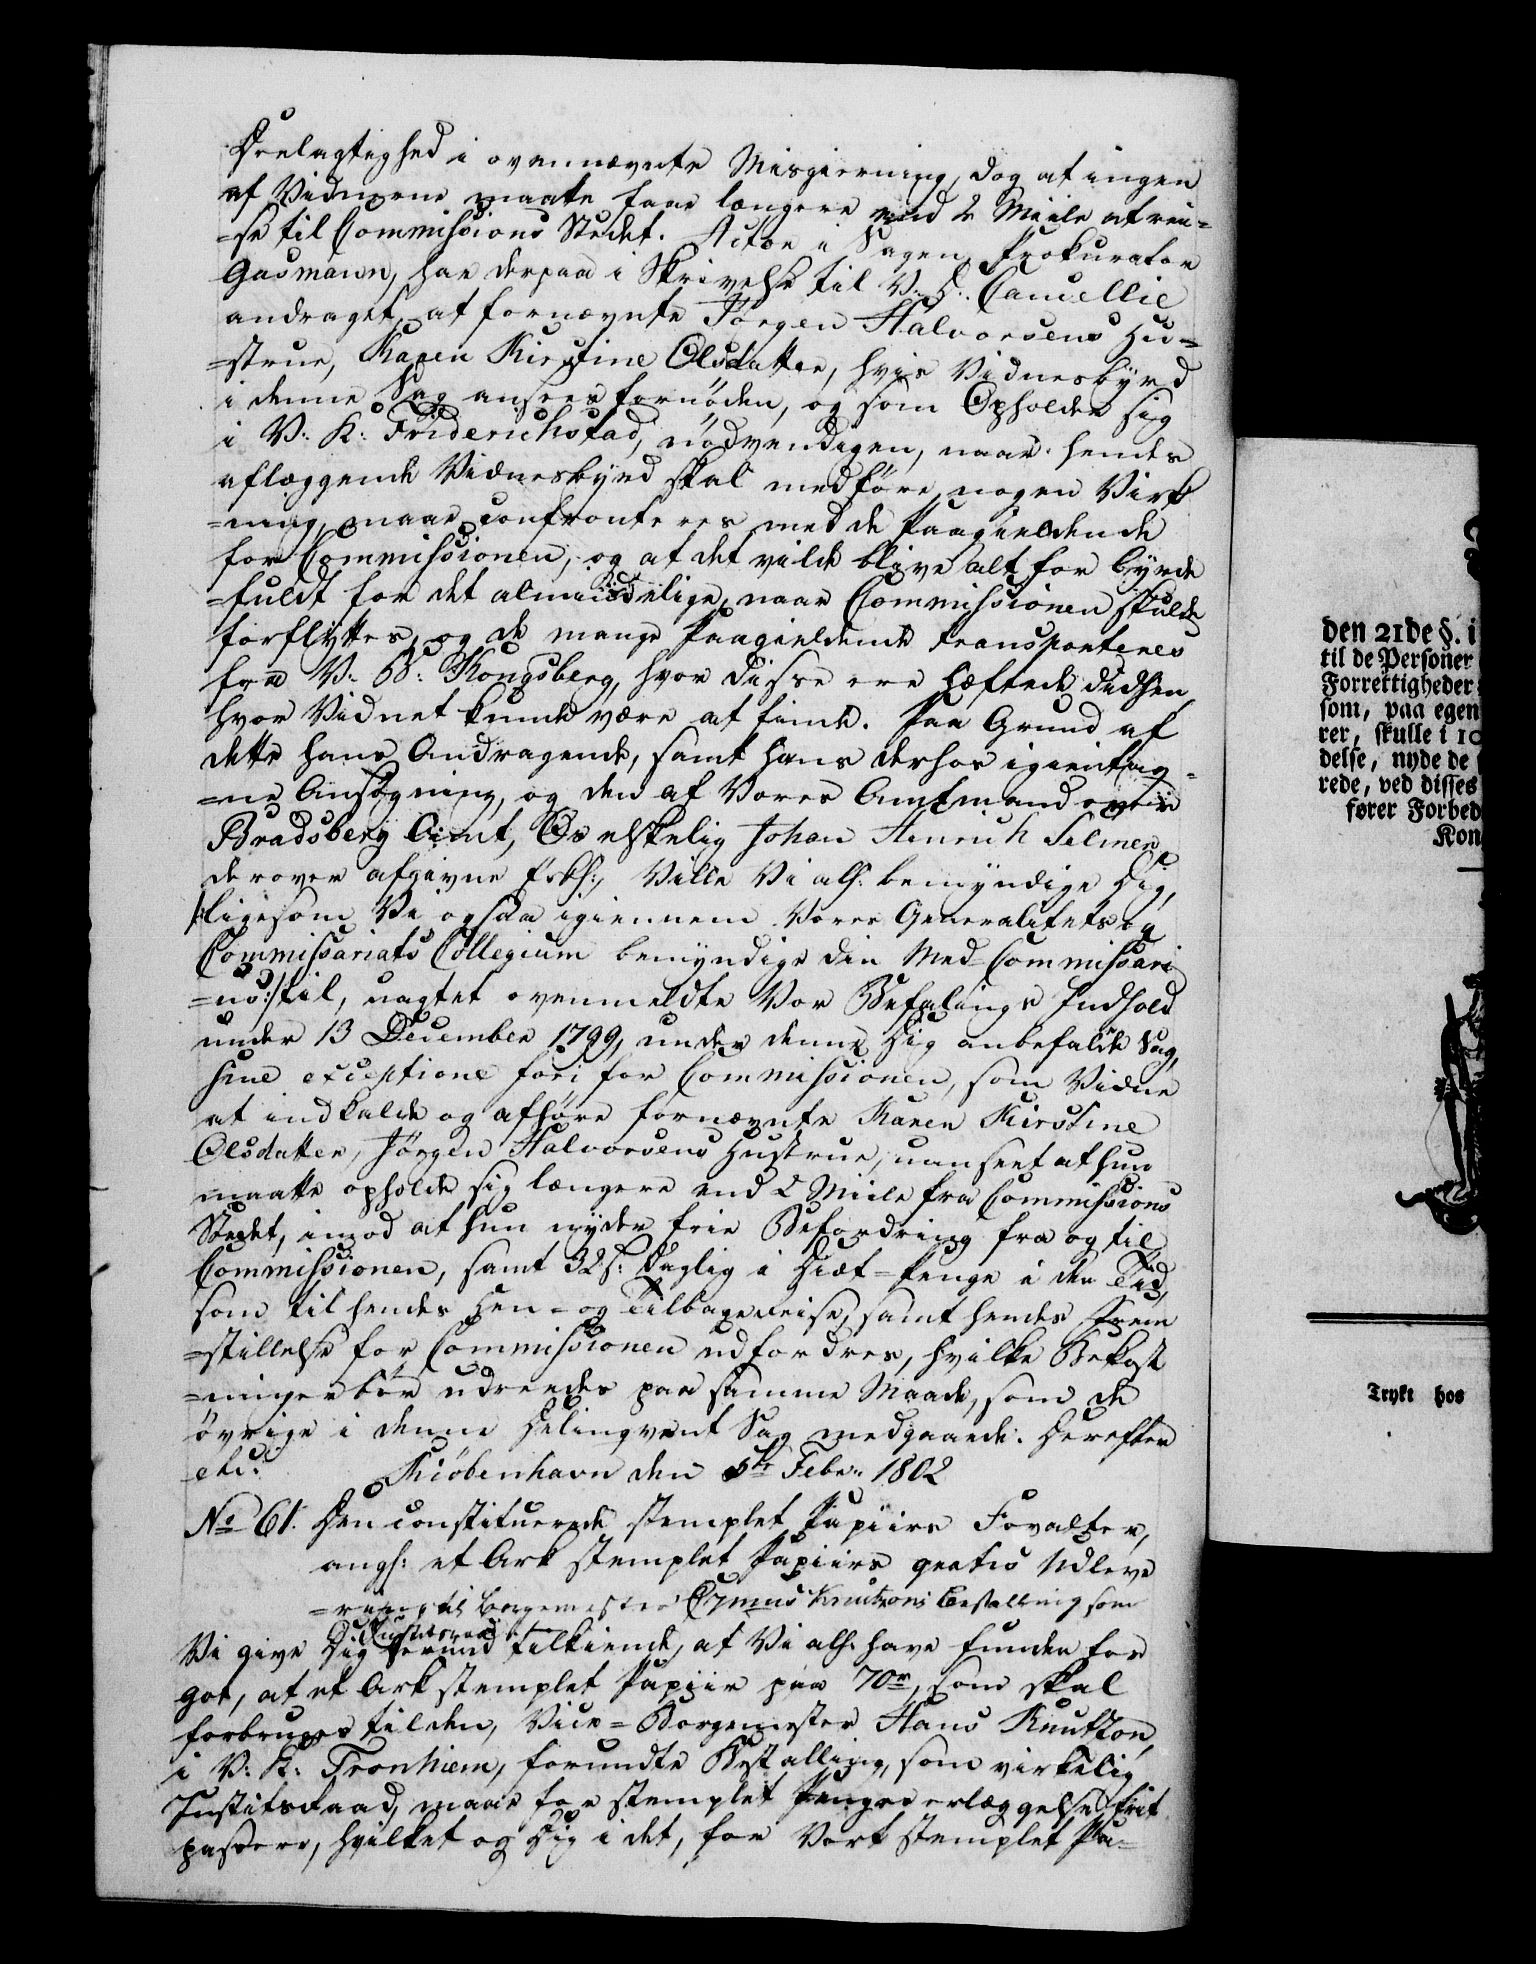 Deelagtighed i ovennævnte Misgierning, dog at ingen
af Vidnerne maatte faae længere end 2 Miile at rei-
-se til Commissions Stedet. Actor i Sagen, Prokurator
Gasmann, har derpaa i Skrivelse til V. D. Cancellie
andraget, at fornævnte Jörgen Halvorsens Hu-
-strue, Karen Kirstine Olsdatter, hvis Vidnesbyrd
i denne Sag ansees fornöden, og som Opholder sig
i V. K. Friderichstad, nödvendigen, naar hendes
aflæggende Vidnesbyrd skal medföre nogen Virk
-ning, maae confronteres med de Paagieldende
for Commissionen, og at det vilde blive alt for byrde
-fuldt for det almindelige, naar Commissionen skulde
forflyttes, og de mange Paagieldende transporteres
fra V. B. Kongsberg, hvor disse ere hæftede didhen,
hvor Vidnet kunde være at finde. Paa Grund af
dette hans Andragende, samt hans derhos igientag-
-ne Ansögning, og den af Vores Amtmand over
Bradsberg Amt, Os elskelig Johan Henrich Selmer,
derover afgivne Erkl:, Ville Vi all. bemyndige Dig,
/: ligesom Vi ogsaa igiennem Vores Generalitets og
Commissariats Collegium bemyndige din Med-Commissari
-us :/ til, uagtet ovenmeldte Vor Befalings Indhold
under 13 December 1799, under denne Dig anbefalede Sag,
sine exceptione fori for Commissionen, som Vidne
at indkalde og afhöre fornævnte Karen Kirstine
Olsdatter, Jörgen Halvorsens Hustrue, uanseet at hun
maatte opholde sig længere end 2 Miile fra Commissions
Stedet, imod at hun nyder frie Befordring fra og til
Commissionen, samt 32 s. daglig i Diæt-Penge i den Tid,
som til hendes Hen- og Tilbagereise, samt hendes Frem
-stillelse for Commissionen udfordres, hvilke Bekost
-ninger bör udredes paa samme Maade, som de
övrige i denne Delinqvent Sag medgaaede. Derefter
etc. Kiöbenhavn den 5te Febr. 1802
No 61. Den constituerede stemplet Papiirs Forvalter,
angl: et Ark stemplet Papiirs gratis Udleve
-ring til Borgemester Knutzons Bestalling som
Justitsraad
Vi give Dig hermed tilkiende, at Vi all. have funden for
got, at et Ark stemplet Papiir paa 70 r, som skal
forbruges til den, Vice-Borgemester Hans Knutzon,
i V. K. Tronhiem, forundte Bestalling, som virkelig
Justitsraad, maae for stemplet Penges erlæggelse frit
passere, hvilket og Dig i det, for Vort stemplet Pa-
den 21de §. i
til de Personer
Forrettigheder
som, paa egen
rer, skulle i 10
delse, nyde de
rede, ved disses
fører Forbed
Kon
Trykt hos